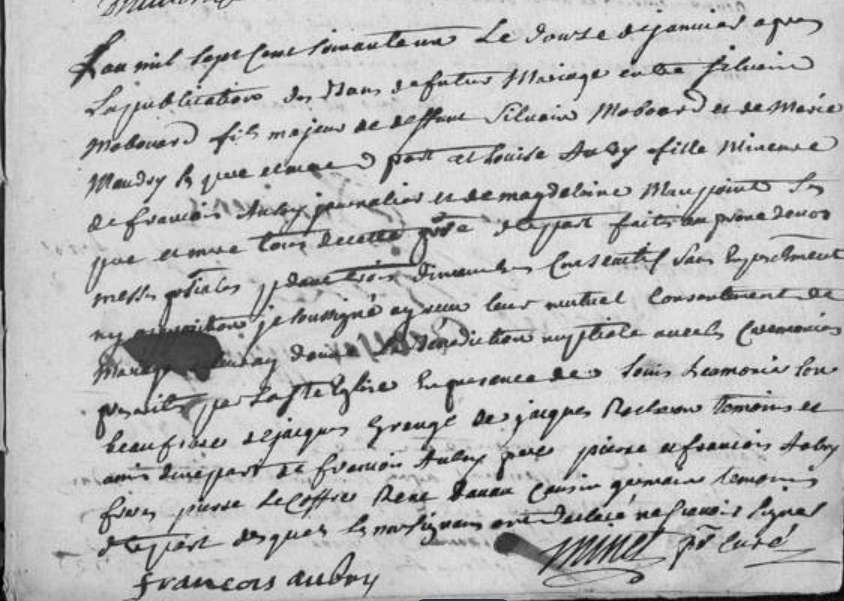 L'an mil sept cent soixante un le douze de janvier apres
la publication des bans de futur mariage entre Silvain
Mabouard fils majeur de deffunt Silvain Mabouard et de Marie
Maudry ses pere et mere d part et Louise Aubry fille mineure
de francois Aubry journalier et de magdelaine Maupoint ses
pere et mere tous de cette psse d'autre part faite au prone de nos
messes psiales pdant trois dimanches consecutif sans empechement
ny opposition je soussigné ay receu leur mutuel consentement de
mariage et leur ay donné la benediction nuptiale avec les ceremonies
prescrites par la Ste Eglise en presence de Louis son
beaufrere de jacques Grangé de jacques temoins et
amis d'une part de francois Aubry pere pierre et francois Aubry
freres pierre Lecoffre René cousin germain temoins
d'autre part desquels les non signans ont declaré ne scavoir signer
francois aubry minet ptre curé